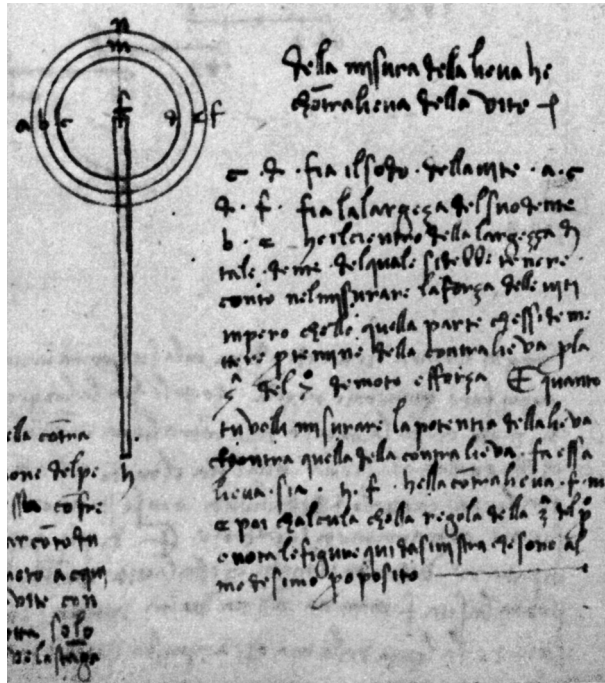 n
m
f
a b c d e f
h
della misura della lieva he
chōtralieva della vite
c · d · fia il sodo · della vite · a · c
d · f · fia la largeza del suo dente
b · e · he il cientro della largeza di
tale · dente · del quale si debbe tenere
conto nel misurare la força delle viti
impero chelle quella parte chessi de me
ttere p termine della contralieva
del de moto e fforça E quanto
tu velli misurare la potentia della lieva
chontra quella della contralieva · fa essa
lieva · sia · h · f · hella cōtralieva · f · m
e poi chalcula cholla regola della del
e nota le figure qui da sinistra che sono al
medesimo proposito
ella cōtra
one del pe
cō fre
moto a
vite con
solo